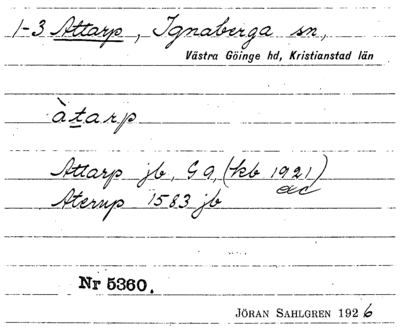 1-3 Attarp, Ignaberga sn,
Västra Göinge hd, Kristianstad län
àtarp
Attarp jb, G 9, (kb 1921)
Aterup 1583 jb
Nr 5360.
JÖRAN SAHLGREN 1926